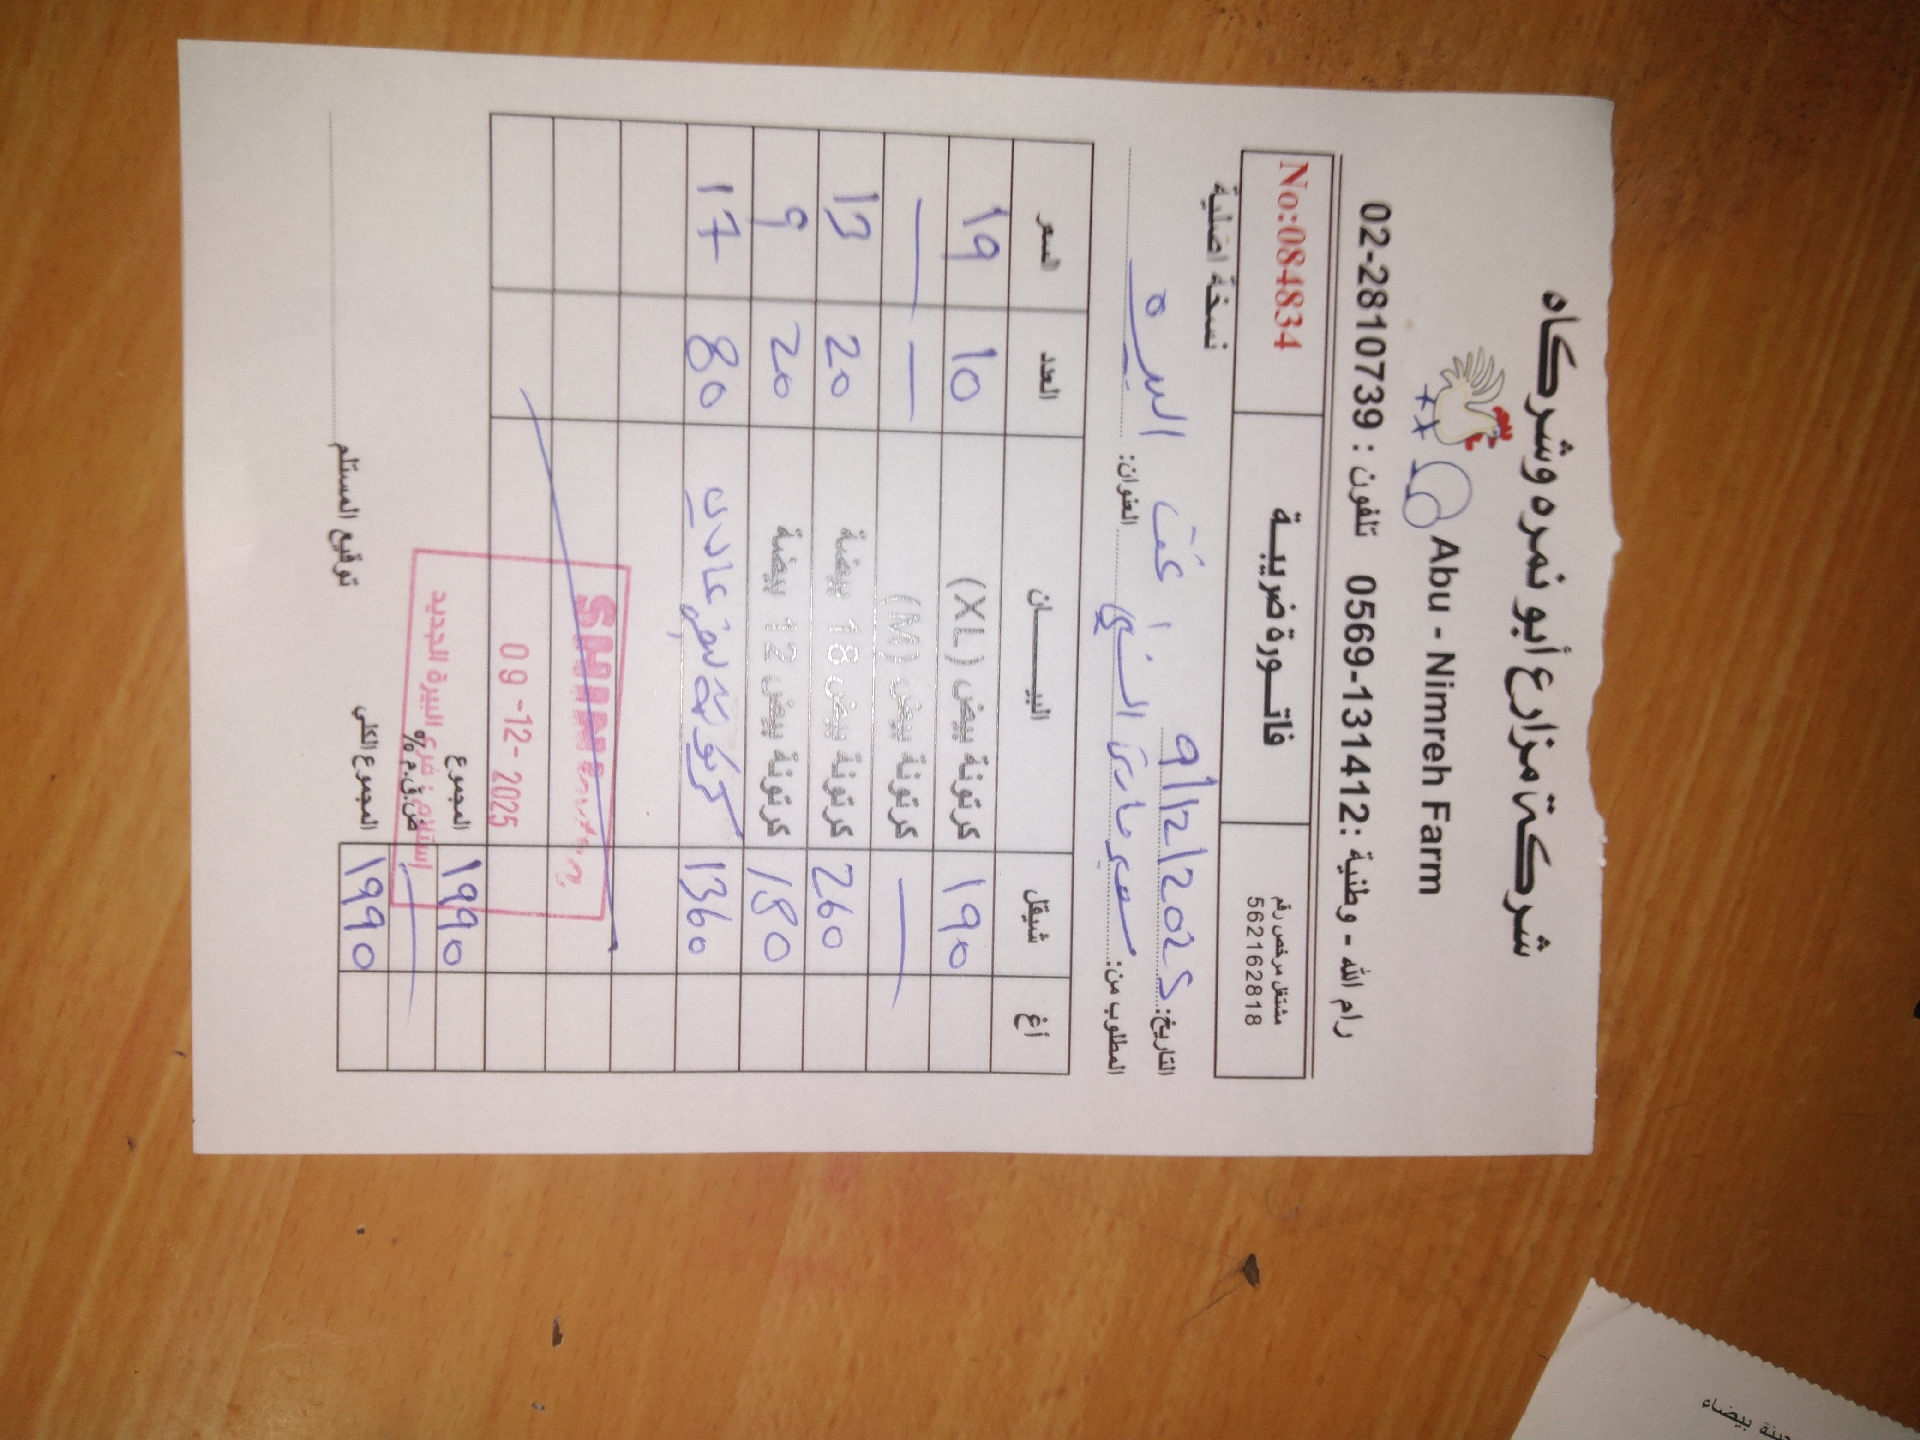 شركة مزارع أبو نمره وشركاه
Abu - Nimreh Farm
رام الله - وطنية : 0569-131412 تلفون : 02-2810739
مشتغل مرخص رقم
562162818
فاتـــورة ضريبـــة
No:084834
نسخة اصلية
التاريخ: 9/12/2025
المطلوب من: سوبر ماركت السني العنوان: البيره
شيقل أغ البيـــــان العدد السعر
190 كرتونة بيض (XL) 10 19
— كرتونة بيض (M) — —
260 كرتونة بيض 18 بيضة 20 13
180 كرتونة بيض 12 بيضة 20 9
1360 كرتونة بيض عادي 80 17
09-12-2025
استلام فرع البيرة الجديد
1990 المجموع
— ض.ق.م %
1990 المجموع الكلي
توقيع المستلم
جبنة بيضاء